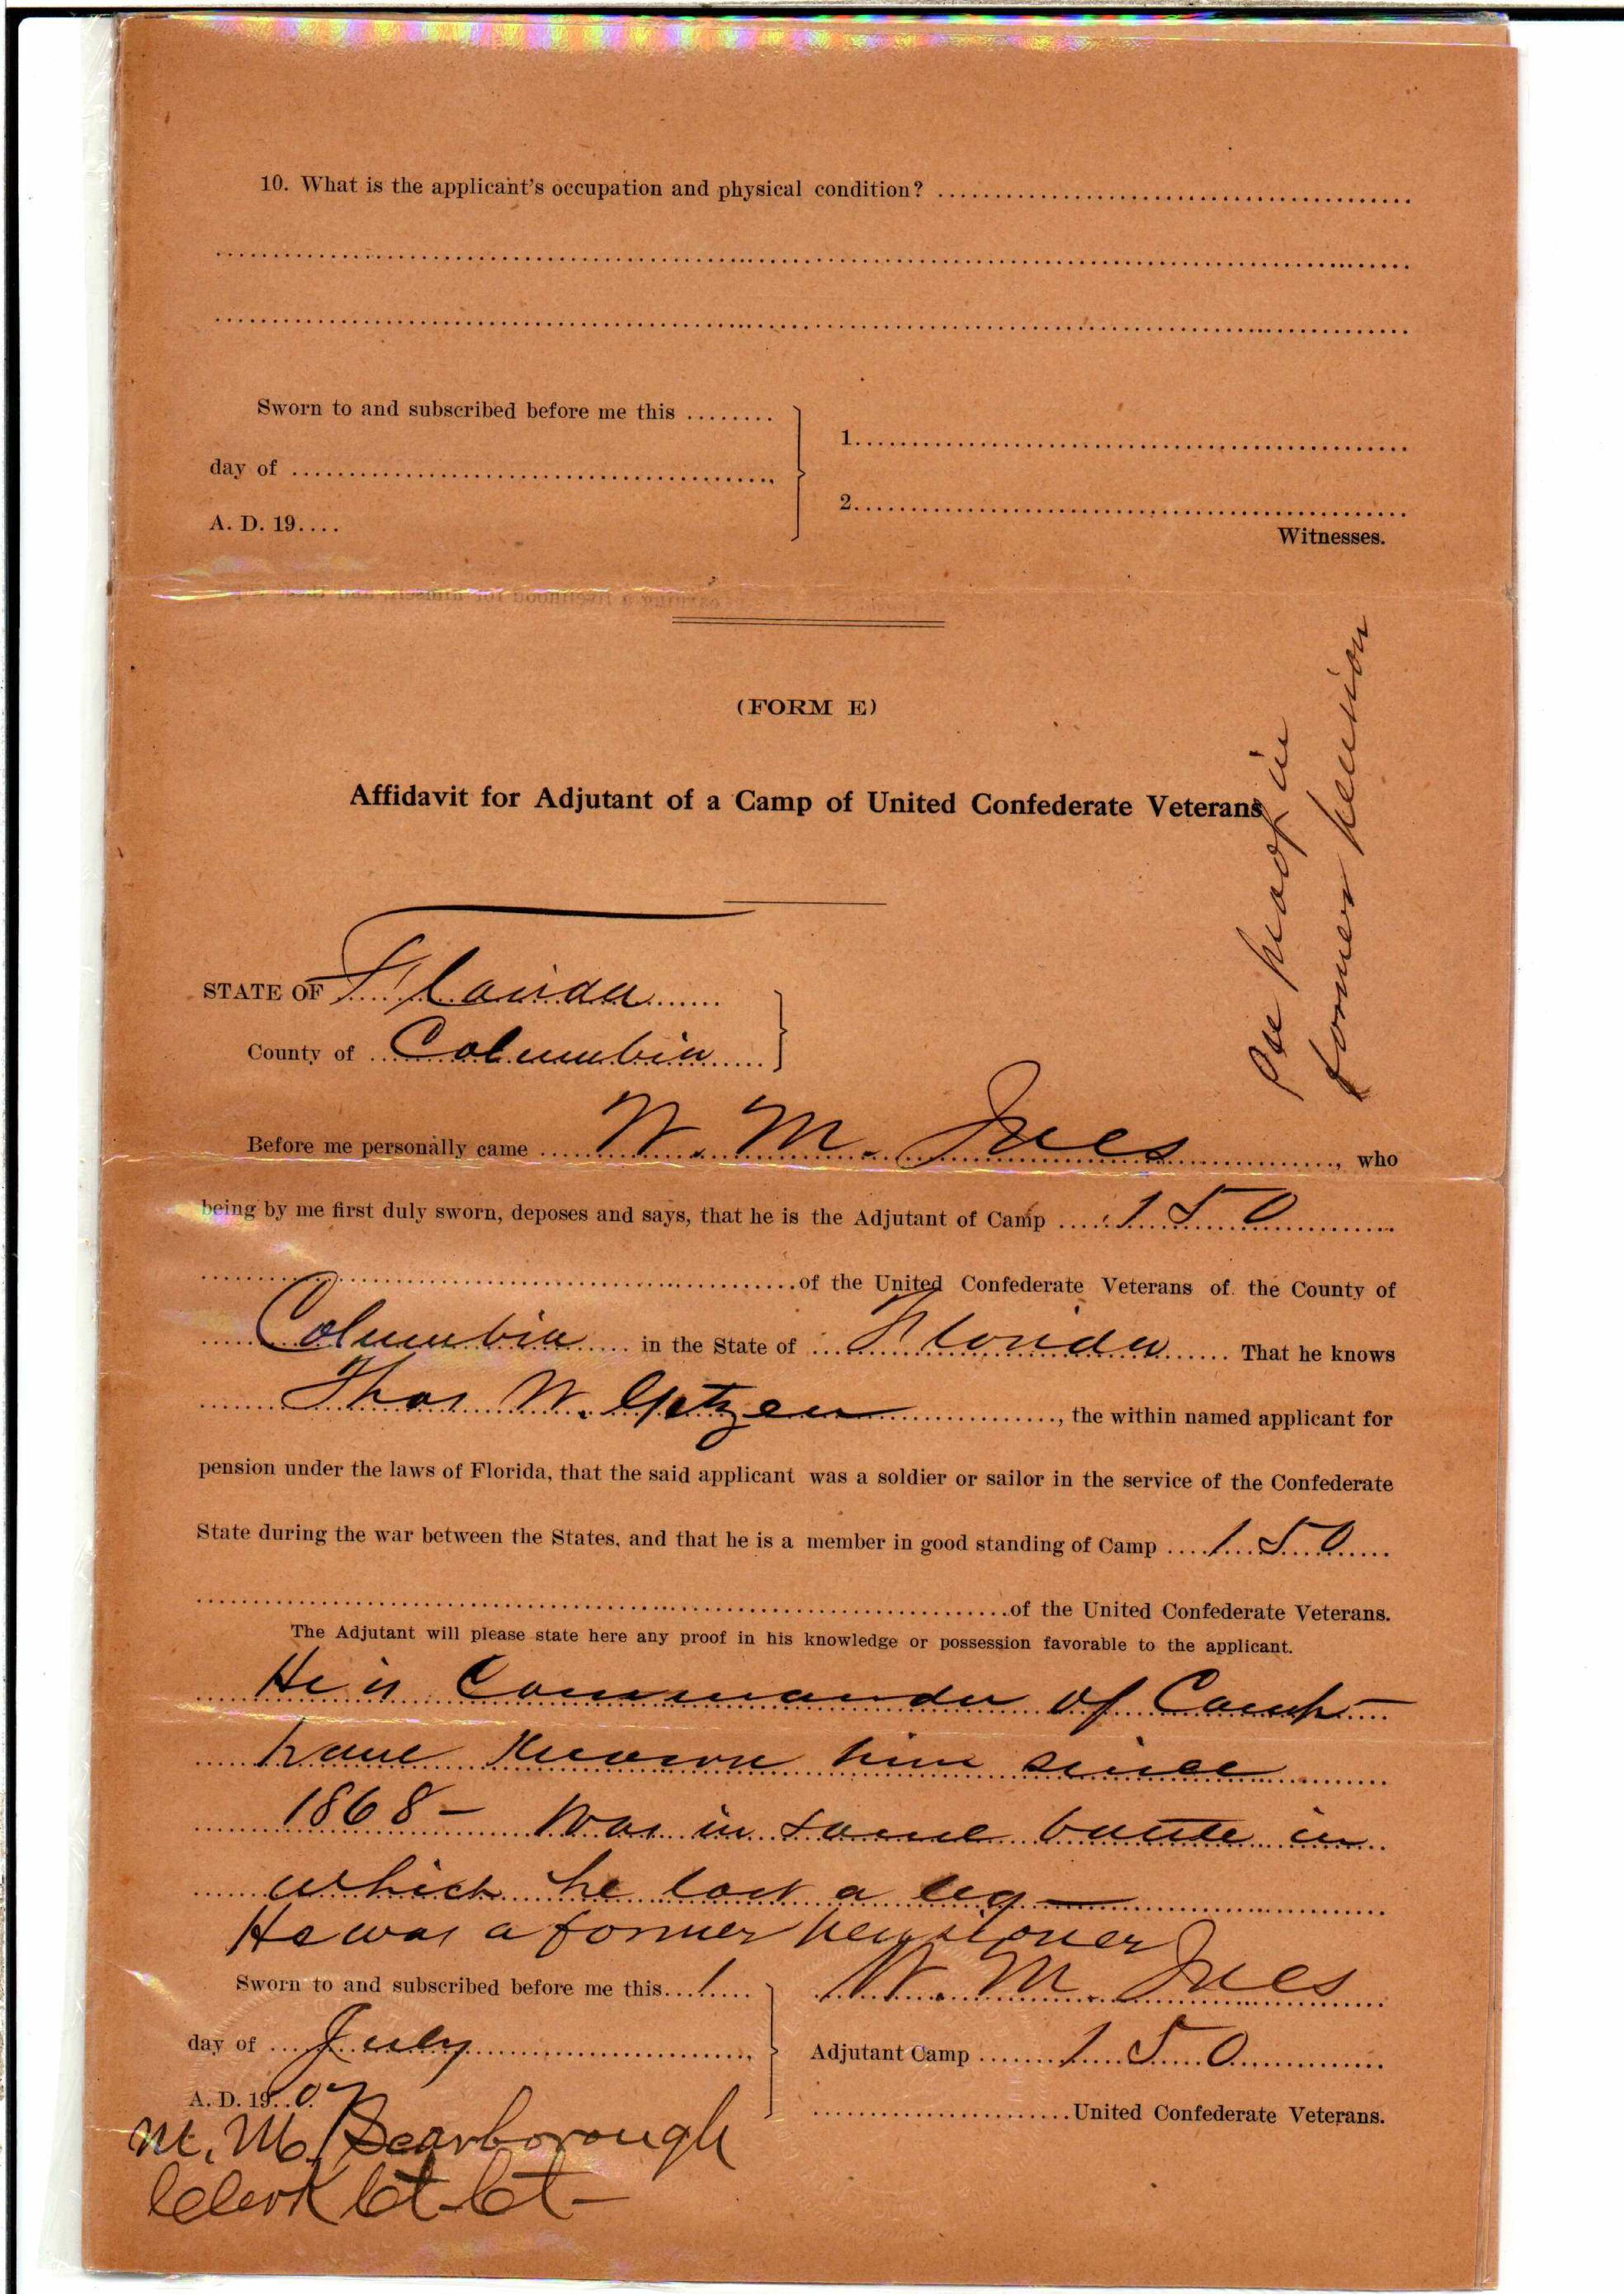 10. What is the applicant's occupation and physical condition?
Sworn to and subscribed before me this
day of
A. D. 19
1.
2.
Witnesses.
(FORM E)
Affidavit for Adjutant of a Camp of United Confederate Veterans
See proof in
former pension
STATE OF Florida
County of Columbia
Before me personally came W. M. Ives, who
being by me first duly sworn, deposes and says, that he is the Adjutant of Camp 150
of the United Confederate Veterans of the County of
Columbia in the State of Florida That he knows
Thos W. Getzen, the within named applicant for
pension under the laws of Florida, that the said applicant was a soldier or sailor in the service of the Confederate
State during the war between the States, and that he is a member in good standing of Camp 150
of the United Confederate Veterans.
The Adjutant will please state here any proof in his knowledge or possession favorable to the applicant.
He is Commander of Camp —
have known him since
1868 — Was in same battle in
which he lost a leg —
He was a former pensioner
Sworn to and subscribed before me this 1
day of July
A. D. 1907
W. M. Ives
Adjutant Camp 150
United Confederate Veterans.
M. M. Scarborough
Clerk Ct. Ct —